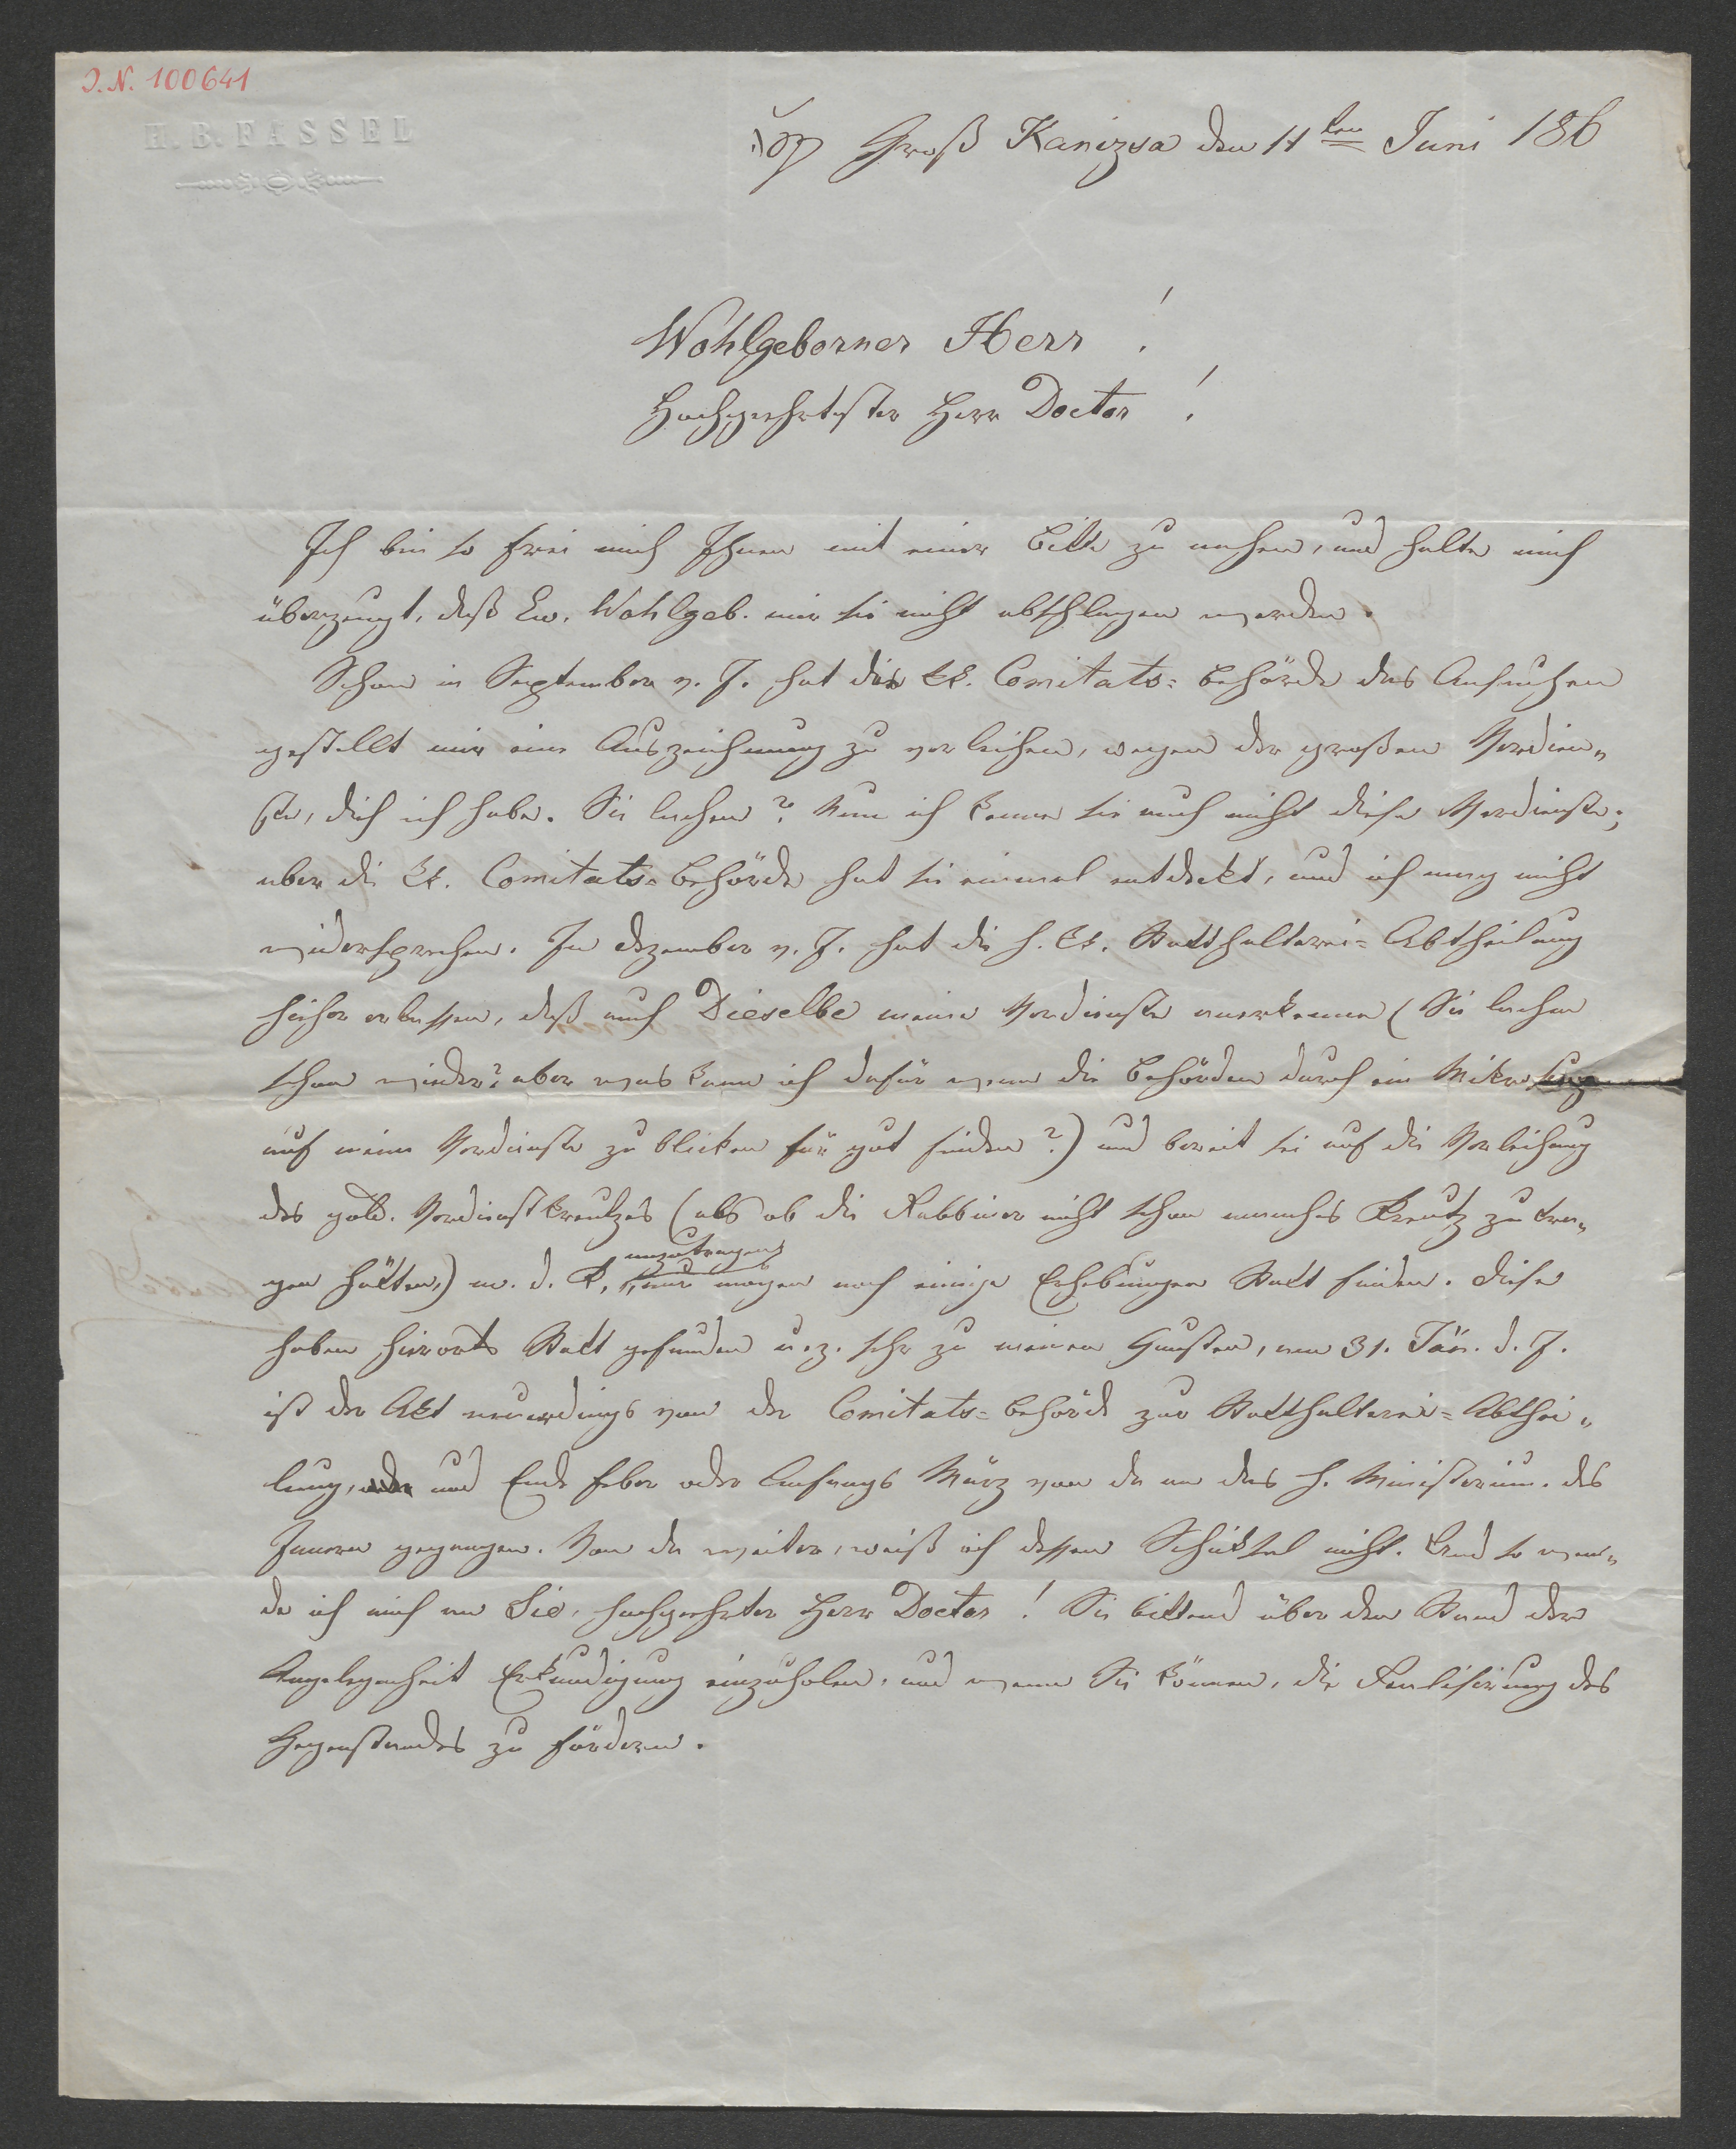 J.N. 100641
H. B. FASSEL
Groß Kanizsa den 11ten Juni 186
Wohlgeborner Herr!
Hochgeehrtester Herr Doctor!
Ich bin so frei mich Ihnen mit einer Bitte zu nahen, und halte mich
überzeugt, daß Ew. Wohlgeb. mir sie nicht abschlagen werden.
Schon in September v. J. hat die kk. Comitats=Behörde das Ansuchen
gestellt mir eine Auszeichnung zu verleihen, wegen der großen Verdien„
ste, die ich habe. Sie lachen? Nun ich kenne sie auch nicht diese Verdienste;
aber die kk. Comitats=Behörde hat sie einmal entdeckt, und ich mag nicht
widersprechen. Im Dezember v. J. hat die h. kk. Statthalterei=Abtheilung
hieher erlassen, daß auch Dieselbe meine Verdienste anerkenne (Sie lachen
schon wieder? aber was kann ich dafür wenn die Behörden durch ein Mikroskop
auf meine Verdienste zu blicken für gut finden?) und bereit sei auf die Verleihung
des gold. Verdienstkreutzes (als ob die Rabbiner nicht schon manches Kreutz zu tra„
gen hätten,) m. d. K. anzutragen, nur mögen noch einige Erhebungen Statt finden. Diese
haben hierorts Statt gefunden u. z. sehr zu meinen Gunsten, am 31. Jän. d. J.
ist der Akt neuerdings von der Comitats=Behörde zur Statthalterei=Abthei„
lung, und Ende Feber oder Anfangs März von da an das h. Ministerium des
Innern gegangen. Von da weiter, weiß ich dessen Schicksal nicht. Und so wen„
de ich mich an Sie, hochgeehrter Herr Doctor! Sie bittend über den Stand der
Angelegenheit Erkundigung einzuholen, und wenn Sie können, die Realisirung des
Gegenstandes zu fördern.